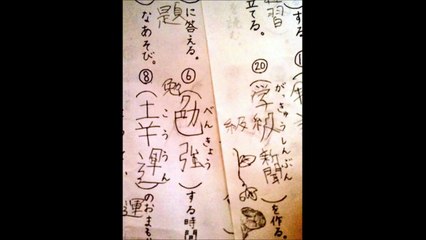 習
立てる。
する
⑳(学級新聞)を作る。
がっきゅうしんぶん
級
題
に答える。
⑥(勉強)する時間
べんきょう
勉
なあそび。
⑧(土羊運)のおまも
こううん
運